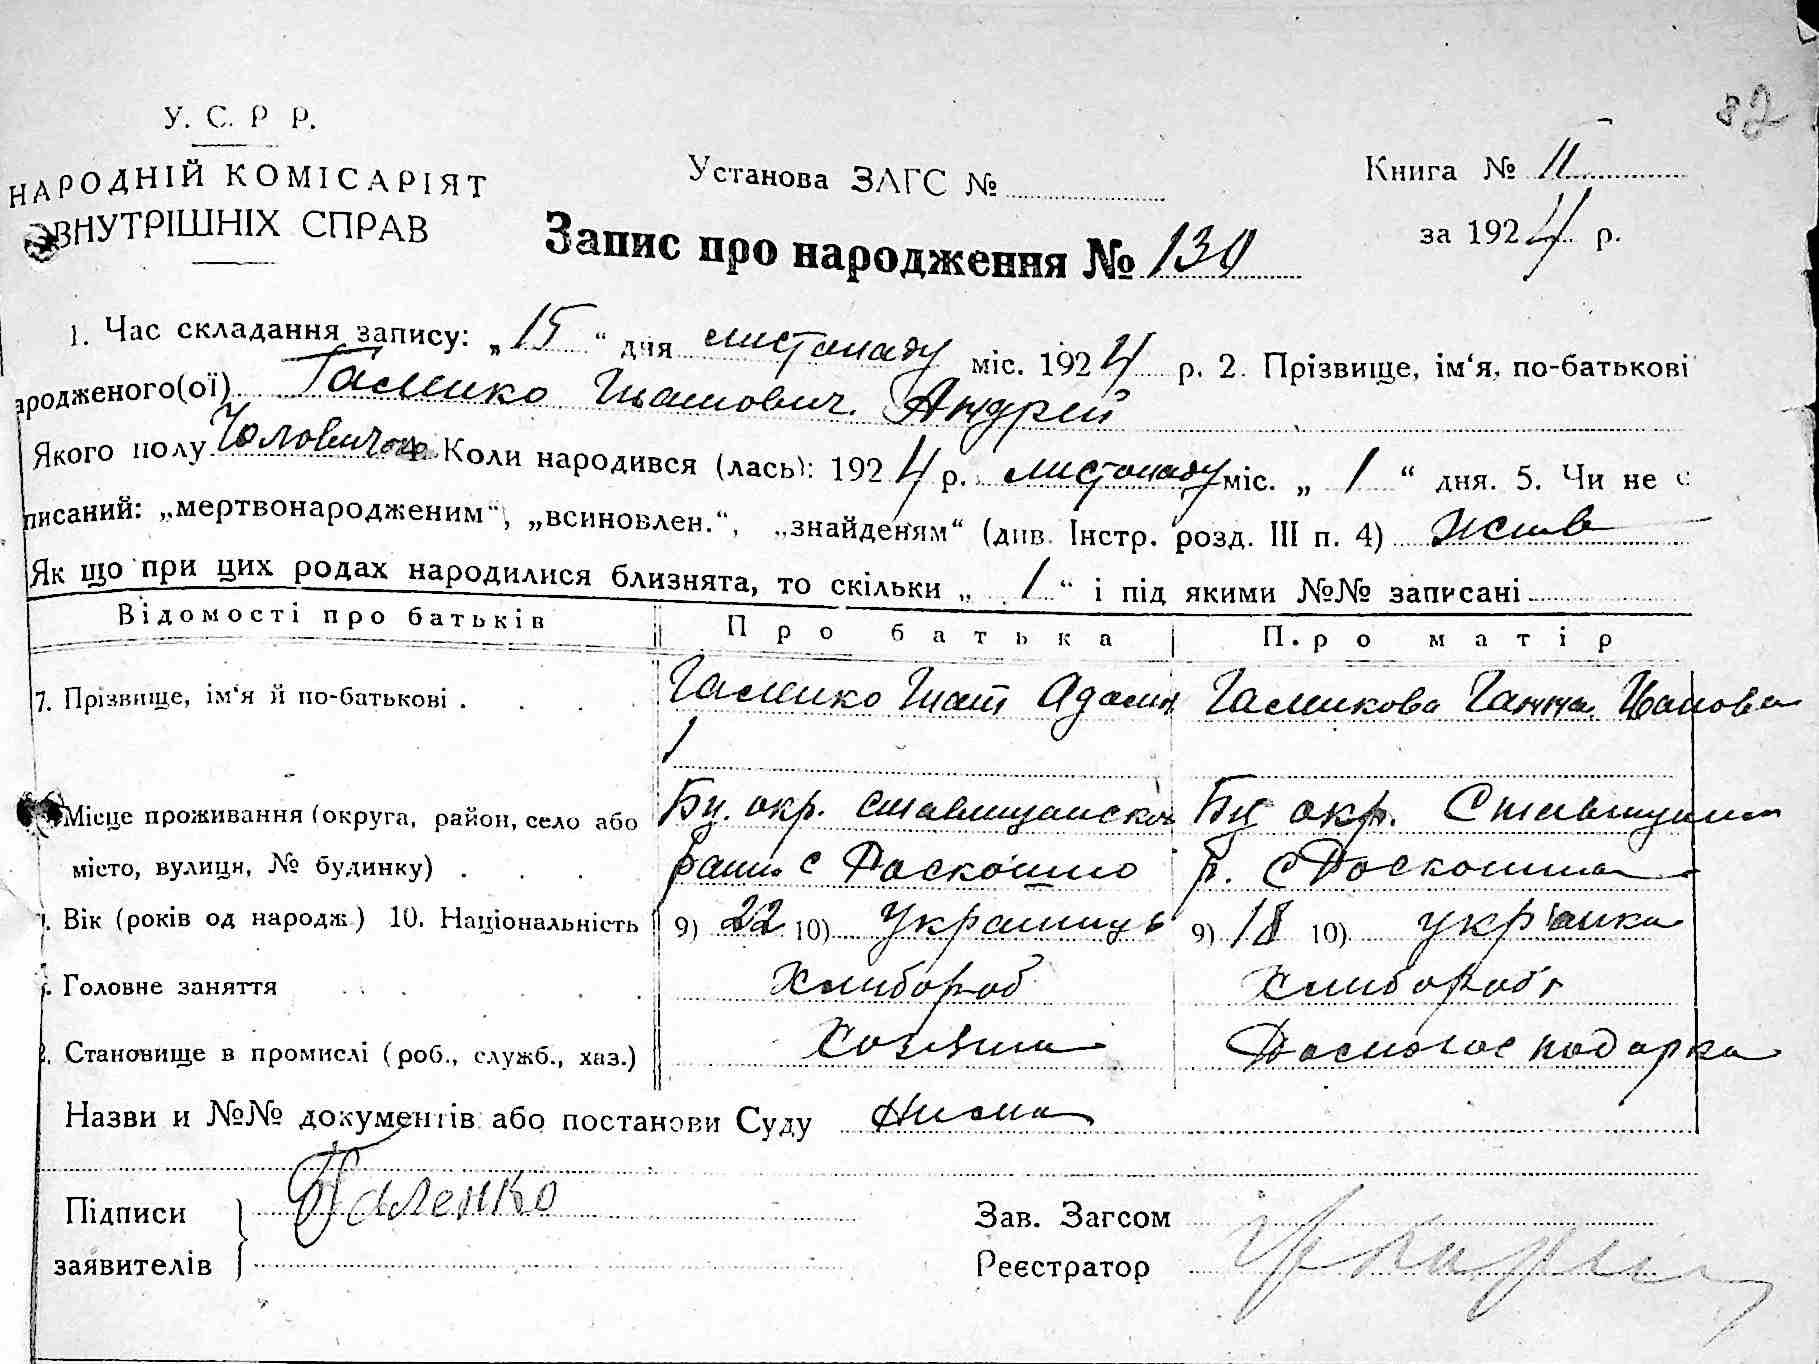 82
У. С. Р Р.
НАРОДНІЙ КОМІСАРІЯТ
ВНУТРІШНІХ СПРАВ
Установа ЗАГС №
Книга № II
за 1924 р.
Запис про народження № 130
1. Час складання запису: „15“ дня листопаду міс. 1924 р. 2. Прізвище, ім‘я, по-батькові
ародженого(ої) Иванович. Андрей
Якого полу Чоловичого 4. Коли народився (лась): 1924 р. листопаду міс. „1“ дня. 5. Чи не
писаний: „мертвонародженим“, „всиновлен.“, „знайденям“ (див. Інстр. розд. III п. 4)
Як що при цих родах народилися близнята, то скільки „1“ і під якими №№ записані
Відомості про батьків Про батька Про матір
7. Прізвище, ім‘я й по-батькові Ганна Иванова
Місце проживання (округа, район, село або Бц. окр. Бц окр.
місто, вулиця, № будинку) с Роскошно р. с Роскошна
Вік (років од народж.) 10. Національність 9) 22 10) Украинць 9) 18 10) укр'анка
Головне заняття Хлибороб Хлибороб
Становище в промислі (роб., служб., хаз.) Хозяин Домогосподарка
Назви и №№ документів або постанови Суду Нима
Підписи Галенко
заявителів
Зав. Загсом
Реєстратор